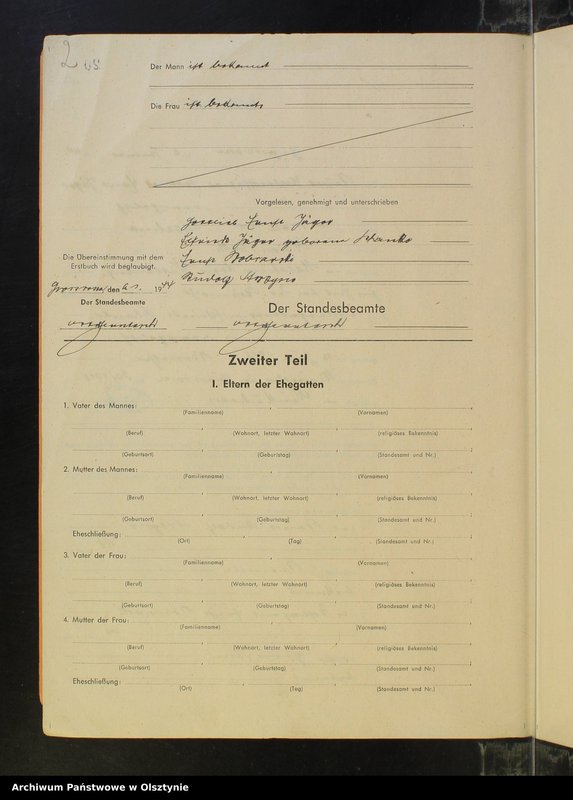 2
Der Mann ist bekannt
Die Frau ist bekannt
Vorgelesen, genehmigt und unterschrieben
Ernst Jäger
Jäger geborene
Die Übereinstimmung mit dem
Erstbuch wird beglaubigt.
Ernst
Rudolf
den 1944
Der Standesbeamte
Der Standesbeamte
Zweiter Teil
I. Eltern der Ehegatten
1. Vater des Mannes:
(Familienname) (Vornamen)
(Beruf) (Wohnort, letzter Wohnort) (religiöses Bekenntnis)
(Geburtsort) (Geburtstag) (Standesamt und Nr.)
2. Mutter des Mannes:
(Familienname) (Vornamen)
(Beruf) (Wohnort, letzter Wohnort) (religiöses Bekenntnis)
(Geburtsort) (Geburtstag) (Standesamt und Nr.)
Eheschließung:
(Ort) (Tag) (Standesamt und Nr.)
3. Vater der Frau:
(Familienname) (Vornamen)
(Beruf) (Wohnort, letzter Wohnort) (religiöses Bekenntnis)
(Geburtsort) (Geburtstag) (Standesamt und Nr.)
4. Mutter der Frau:
(Familienname) (Vornamen)
(Beruf) (Wohnort, letzter Wohnort) (religiöses Bekenntnis)
(Geburtsort) (Geburtstag) (Standesamt und Nr.)
Eheschließung:
(Ort) (Tag) (Standesamt und Nr.)
Archiwum Państwowe w Olsztynie